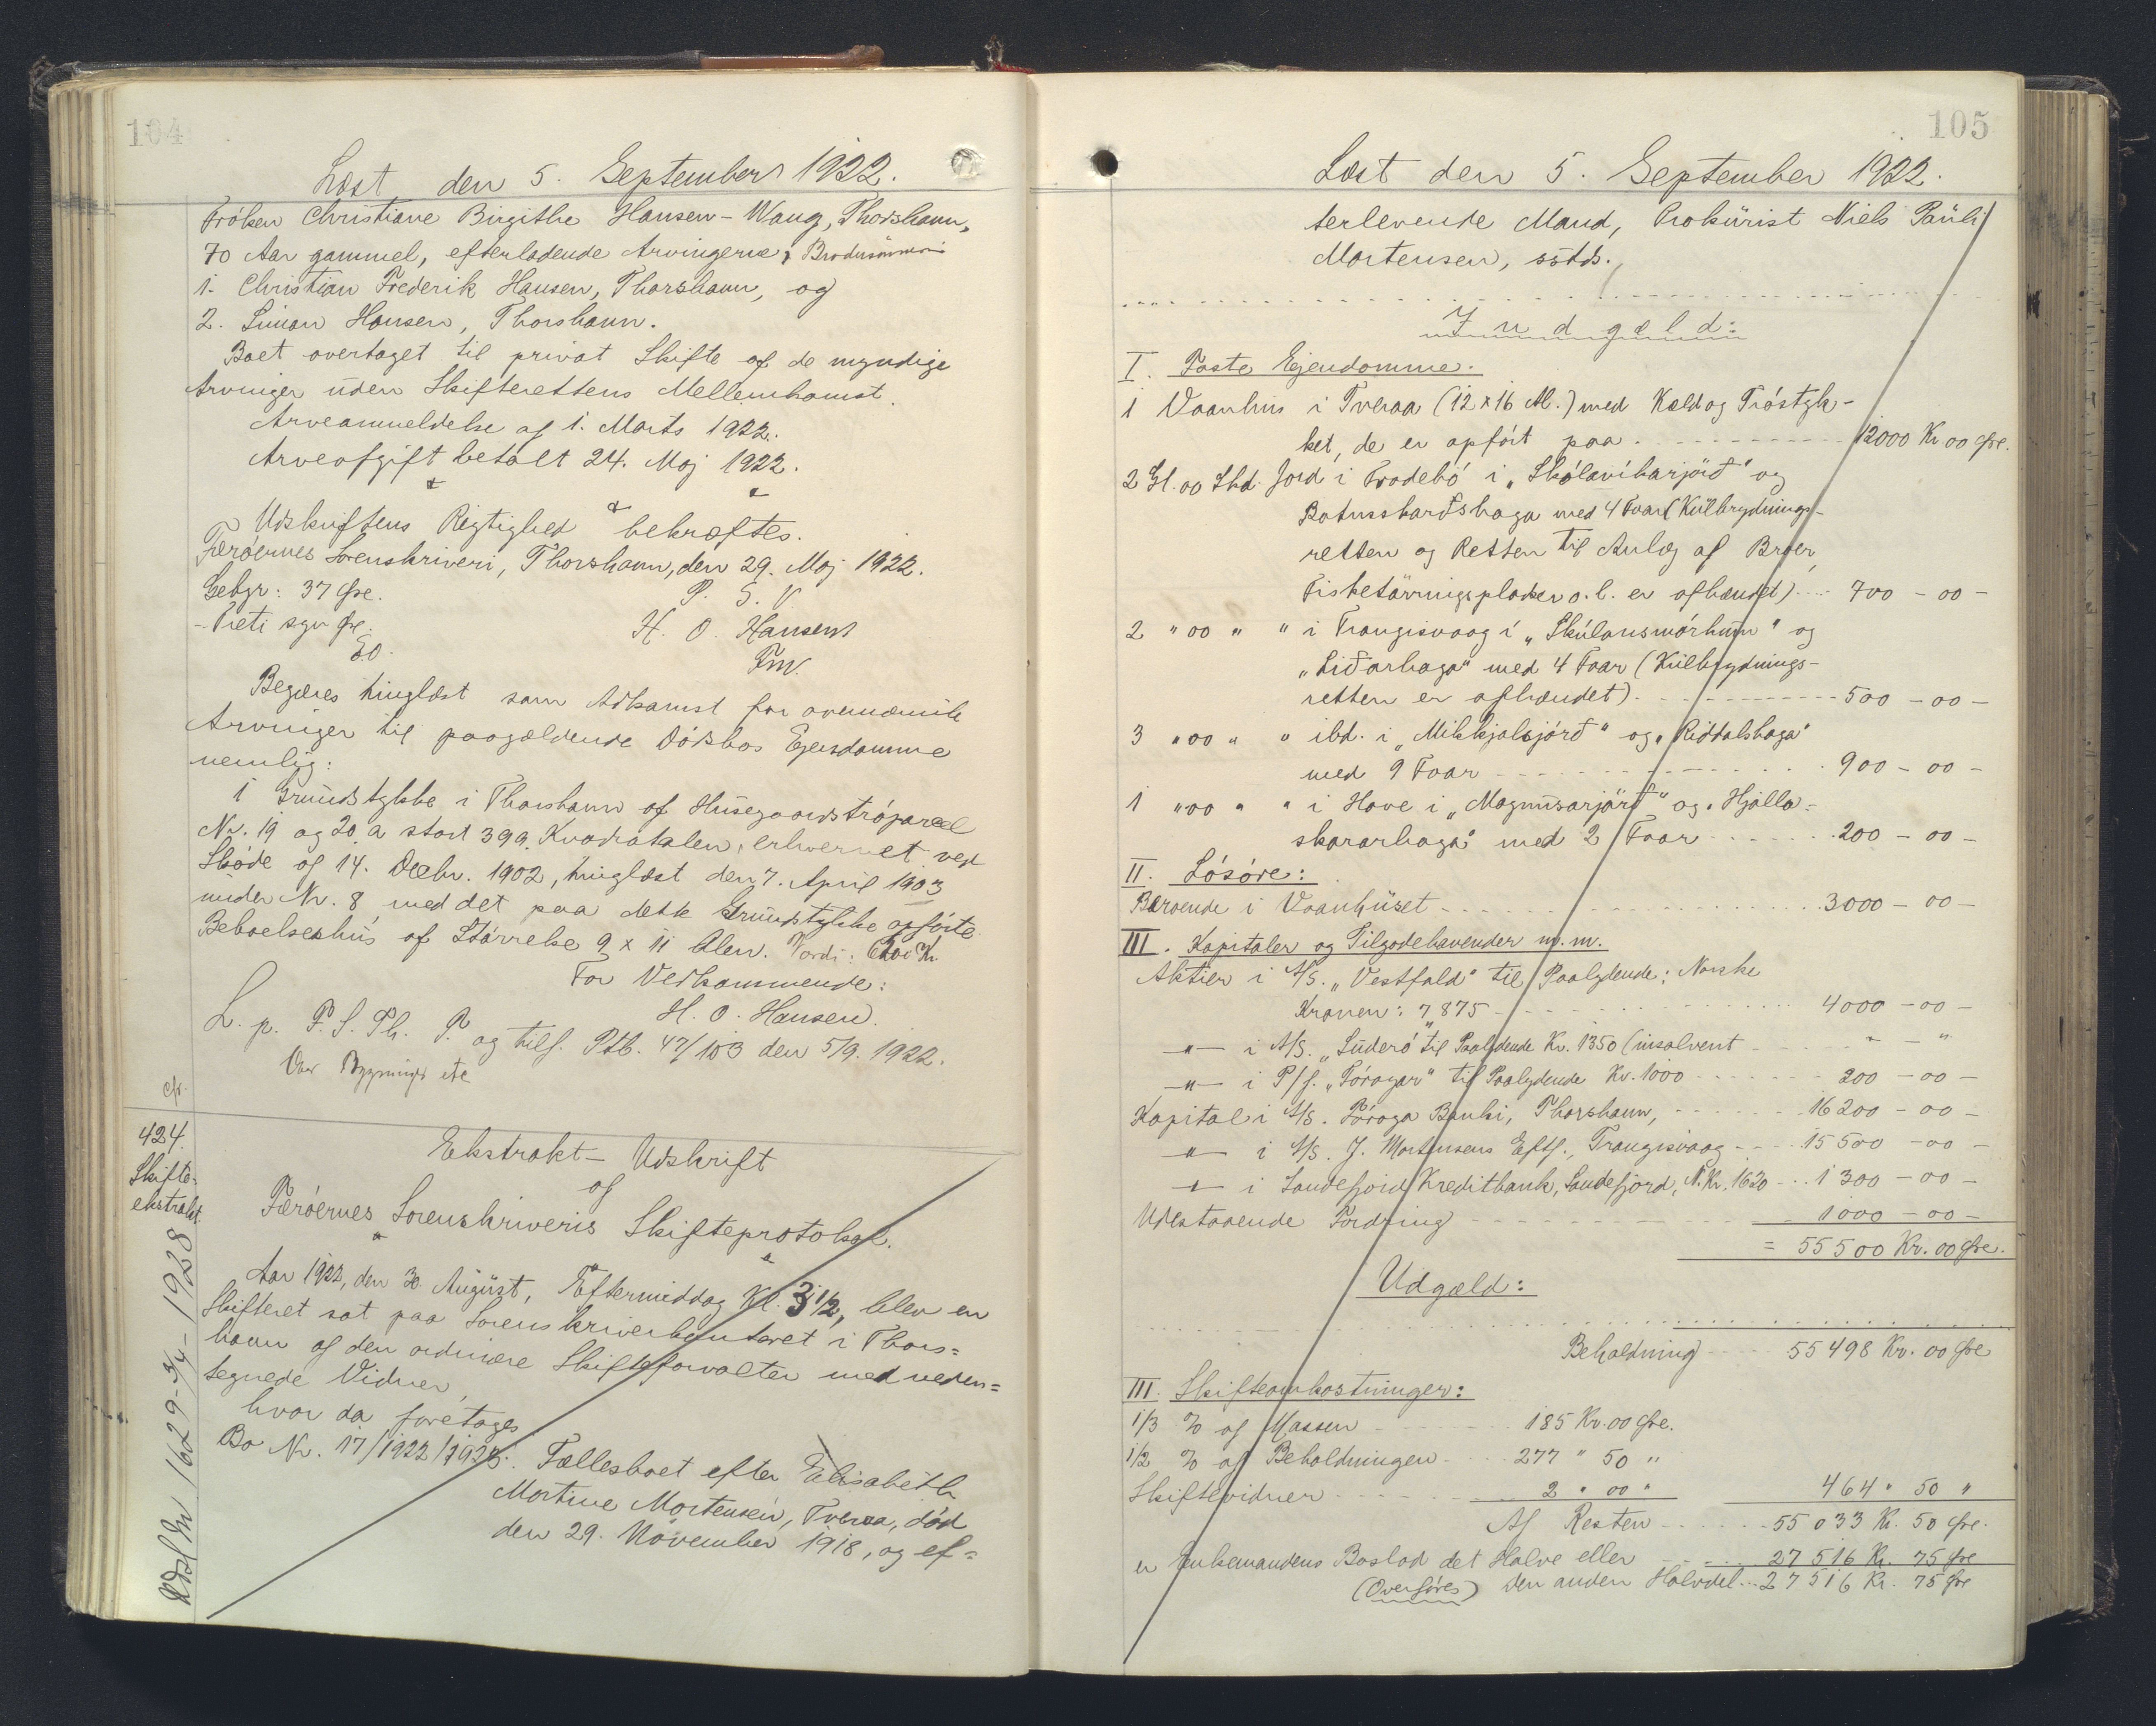 104
Læst den 5. September 1922.
Frøken Christiane Birgithe Hansen-Wang, Thorshavn,
70 Aar gammel, efterladende Arvingerne, Brodersønnerne
1. Christian Frederik Hansen, Thorshavn, og
2. Simon Hansen, Thorshavn.
Boet overtaget til privat Skifte af de myndige
Arvinger uden Skifterettens Mellemkomst.
Arveanmeldelse af 1. Marts 1922.
Arveafgift betalt 24. Maj 1922.
Udskriftens Rigtighed bekræftes.
Færøernes Sorenskriveri, Thorshavn, den 29. Maj 1922.
Gebyr: 37 Øre. P. S. V
- Treti syv Øre. H. O. Hansen
EO. Fm.
Begæres tinglæst som Adkomst for ovennævnte
Arvinger til paagældende Dødsbos Ejendomme
nemlig:
1 Grundstykke i Thorshavn af Husegaardstróparcel
Nr. 19 og 20 a stort 399 Kvadratalen, erhvervet ved
Skøde af 14. Decbr. 1902, tinglæst den 7. April 1903
under Nr. 8 med det paa dette Grundstykke opførte
Beboelseshus af Størrelse 9 x 11 Alen. Værdi: 6200 Kr.
For Vedkommende:
H. O. Hansen.
L. p. F. S. Th. P. og tilf. Ptb. 47/103 den 5/9. 1922.
Bygninger etc
cfr.
424.
Skifte-
ekstrakt.
Udsl Nr 1629-3/4-1928
Ekstrakt-Udskrift
af
Færøernes Sorenskriveris Skifteprotokol.
Aar 1922, den 30. August, Eftermiddag Kl. 3 1/2, blev en
Skifteret sat paa Sorenskriverkontoret i Thors=
havn af den ordinære Skifteforvalter med neden=
tegnede Vidner,
hvor da foretoges
Bo Nr. 17/1922/1923. Fællesboet efter Elisabeth
Mortine Mortensen, Tveraa, død
den 29. November 1918, og ef=
105
Læst den 5. September 1922.
terlevende Mand, Prokurist Niels Pauli
Mortensen, sstds.,
Indgæld:
I. Faste Ejendomme.
1 Vaanhus i Tveraa (12x16 Al.) med Kæld og Tróstyk-
ket, de er opført paa 12000 Kr 00 Øre.
2 Gl. 00 Skd. Jord i Frodebø i "Skálavíkarjørð" og
Botnsskarðshaga med 4 Foar (Kulbrydnings-
retten og Retten til Anlæg af Broer,
Fisketørringspladser o. l. er afhændet) 700 - 00 -
2 " 00 " " i Trangisvaag í "Skúlansmórhúsn" og
"Liðarhaga" med 4 Foar (Kulbrydnings-
retten er afhændet) 500 - 00 -
3 " 00 " " ibd. i "Mikkjalsjørð" og "Riddalshaga"
med 9 Foar 900 - 00 -
1 " 00 " " i Hove i "Magnusarjørð" og "Hjalla-
skararhaga" med 2 Foar 200 - 00 -
II. Løsøre:
Beroende i Vaanhuset 3000 - 00 -
III. Kapitaler og Tilgodehavender m. m.
Aktier i A/S. "Vestfold" til Paalydende: Norske
Kroner: 7875 4000 - 00 -
-"- i A/S. "Suderø" til Paalydende Kr. 1350 (insolvent " - "
-"- i P/f. "Føroyar" til Paalydende Kr. 1000 200 - 00 -
Kapital i A/S. Føroya Banki, Thorshavn, 16200 - 00 -
-"- i A/S. J. Mortensens Eftf., Trangisvaag 15500 - 00 -
-"- i Sandefjord Kreditbank, Sandefjord, N. Kr. 1620 1300 - 00 -
Udestaaende Fordring 1000 - 00 -
= 55500 Kr. 00 Øre.
Udgæld:
Beholdning 55498 Kr. 00 Øre
III. Skifteomkostninger:
1/3 % af Massen 185 Kr. 00 Øre.
1/2 % af Beholdningen 277 " 50 "
Skiftevidner 2 " 00 " 464 " 50 "
Af Resten 55033 Kr. 50 Øre.
er Enkemandens Boslod det Halve eller 27516 Kr. 75 Øre
(Overføres) den anden Halvdel 27516 Kr. 75 Øre